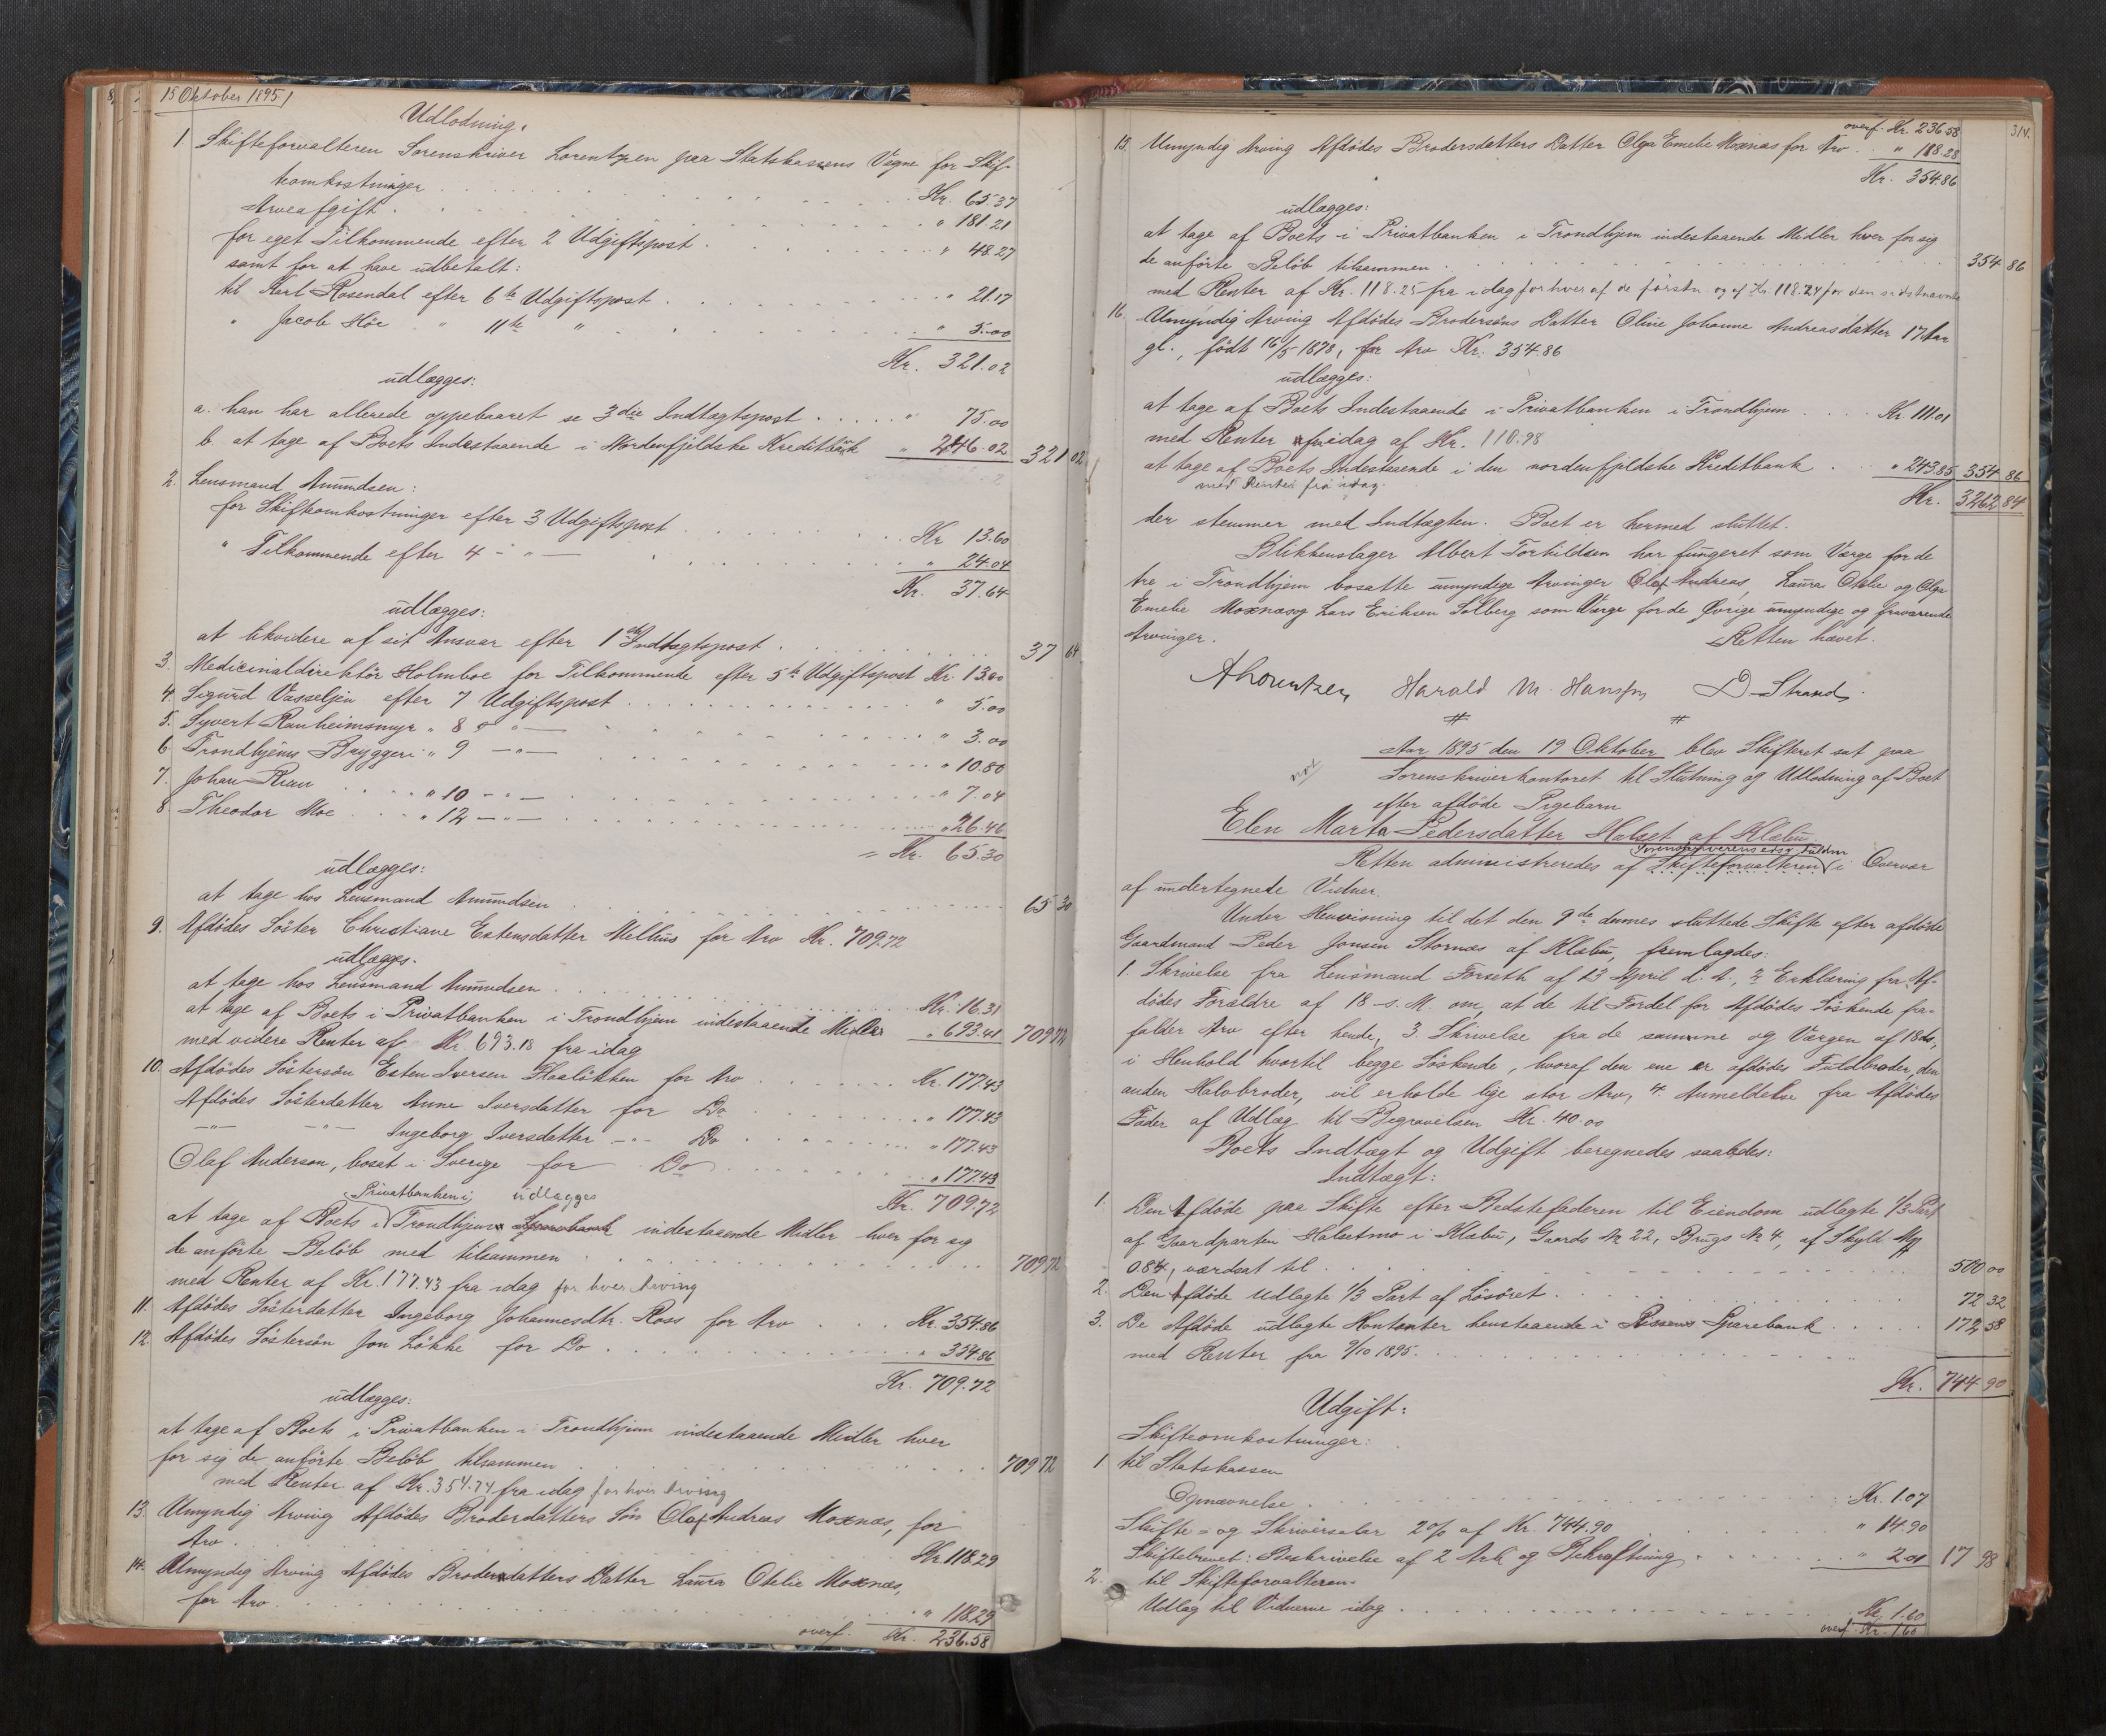 15 Oktober 1895/
Udlodning.
1. Skifteforvalteren Sorenskriver Lorentzen paa Statskassens Vegne for Skif-
teomkostninger . . . Kr. 65.37
Arveafgift . . . " 181.21
for eget Tilkommende efter 2 Udgiftspost . . . " 48.27
samt for at have udbetalt:
til Karl Rosendal efter 6te Udgiftspost . . . " 21.17
" Jacob Höe " 11te " . . . " 5.00
Kr. 321.02
udlægges:
a. han har allerede oppebaaret se 3die Indtægtspost . . . " 75.00
b. at tage af Boets Indestaaende i Nordenfjeldske Kreditbank " 246.02 321 02
2. Lensmand Amundsen:
for Skifteomkostninger efter 3 Udgiftspost . . . Kr 13.60
" Tilkommende efter 4 - " - . . . " 24.04
Kr. 37.64
udlægges:
at likvidere af sit Ansvar efter 1ste Indtægtspost . . . 37 64
3. Medicinaldirektör Holmboe for Tilkommende efter 5te Udgiftspost Kr. 13.00
4. Sigurd Vasseljen efter 7 Udgiftspost . . . " 5.00
5. Syvert Ranheimsmyr " 8 - " - . . . " 3.00
6. Trondhjems Bryggeri " 9 - " - . . . " 10.80
7. Johan Rian . . . " 10 - " - . . . " 7.04
8. Theodor Moe . . . " 12 - " - . . . " 26.46
= Kr. 65.30
udlægges:
at tage hos Lensmand Amundsen . . . 65 30
9. Afdödes Söster Christiane Estensdatter Melhus for Arv Kr. 709.72
udlægges.
at tage hos Lensmand Amundsen . . . Kr. 16.31
at tage af Boets i Privatbanken i Trondhjem indestaaende Midler " 693.41 709 72
med videre Renter af Kr. 693.18 fra idag
10. Afdödes Söstersön Esten Iversen Flaalökken for Arv . . . Kr. 177.43
Afdödes Sösterdatter Anne Iversdatter for Do . . . " 177.43
- " - - " - Ingeborg Iversdatter - " - Do . . . " 177.43
Olaf Anderson, bosat i Sverige for Do . . . " 177.43
Privatbanken i udlægges Kr. 709.72
at tage af Boets i Trondhjems Sparebank indestaaende Midler hver for sig
de anförte Belöb med tilsammen . . . 709 72
med Renter af Kr. 177.43 fra idag for hver Arving
11. Afdödes Sösterdatter Ingeborg Johannesdtr. Ross for Arv . . . Kr. 354.86
12. Afdödes Söstersön Jon Lökke for Do . . . " 354.86
Kr. 709.72
udlægges:
at tage af Boets i Privatbanken i Trondhjem indestaaende Midler hver
for sig de anförte Belöb tilsammen . . . 709 72
med Renter af Kr. 354.74 fra idag for hver Arving
13. Umyndig Arving Afdödes Broderdatters Sön Olaf Andreas Moxnæs, for
Arv . . . Kr. 118.29
14. Umyndig Arving Afdödes Brodersdatters Datter Laura Otelie Moxnæs,
for Arv . . . " 118.29
overf. Kr. 236.58
314.
overf. Kr. 236.58
15. Umyndig Arving Afdödes Brodersdatters Datter Olga Emelie Moxnæs for Arv . . " 118.28
Kr. 354.86
udlægges:
at tage af Boets i Privatbanken i Trondhjem indestaaende Midler hver for sig
de anförte Belöb tilsammen . . . 354 86
med Renter af Kr. 118.25 fra idag for hver af de förste og af Kr. 118.24 for den sidstnævnte
16. Umyndig Arving Afdödes Brodersöns Datter Oline Johanne Andreasdatter 17 Aar
gl., födt 16/5 1878, for Arv Kr. 354.86
udlægges:
at tage af Boets Indestaaende i Privatbanken i Trondhjem . . . Kr. 111.01
med Renter fra idag af Kr. 110.98
at tage af Boets Indestaaende i den nordenfjeldske Kreditbank . . . " 243.85 354 86
med Renter fra idag. Kr. 3262 84
der stemmer med Indtægten. Boet er hermed sluttet.
Blikkenslager Albert Torkildsen har fungeret som Værge for de
tre i Trondhjem bosatte umyndige Arvinger Olaf Andreas, Laura Otelie og Olga
Emelie Moxnæs og Lars Eriksen Solberg som Værge for de Övrige umyndige og fraværende
Arvinger. Retten hævet.
ALorentzen Harald M. Hansen D. Strand.
Aar 1895 den 19 Oktober blev Skifteret sat paa
Sorenskriverkontoret til Slutning og Udlodning af Boet
efter afdöde Pigebarn
Elen Marta Pedersdatter Halset af Klæbu
Retten administreredes af Skifteforvalteren i Overvær
af undertegnede Vidner.
Under Henvisning til det den 9de dennes sluttede Skifte efter afdöde
Gaardmand Peder Jonsen Stornæs af Klæbu, fremlagdes:
1. Skrivelse fra Lensmand Forseth af 23 April d. A., 2 Erklæring fra Af-
dödes Forældre af 18 s. M. om, at de til Fordel for Afdödes Söskende fra-
falder Arv efter hende, 3. Skrivelse fra de samme og Værgen af 18 ds,
i Henhold hvortil begge Söskende, hvoraf den ene er afdödes Fuldbroder, den
anden Halvbroder, vil erholde lige stor Arv, 4. Anmeldelse fra Afdödes
Fader af Udlæg til Begravelsen Kr. 40.00
Boets Indtægt og Udgift beregnedes saaledes:
Indtægt:
1. Den Afdöde paa Skifte efter Bedstefaderen til Eiendom udlagte 1/3 Part
af Gaardparten Halsetmo i Klæbu, Gaards No 22, Brugs No 4, af Skyld Mk
0.84, værdsat til . . . 500 00
2. Den Afdöde udlagte 1/3 Part af Lösöret . . . 72 32
3. De Afdöde udlagte Kontanter henstaaende i Rissens Sparebank . . . 172 58
med Renter fra 9/10 1895 . . .
Kr. 744 90
Udgift:
Skifteomkostninger:
1 til Statskassen
Opnævnelse . . . Kr. 1.07
Skifte- og Skriversalær 2% af Kr. 744.90 . . . " 14.90
Skiftebrevet: Beskrivelse af 2 Ark og Bekræftning . . . " 2.01 17 98
2. til Skifteforvalteren
Udlæg til Vidnerne idag . . . Kr. 1.60
overf. Kr. 1.60